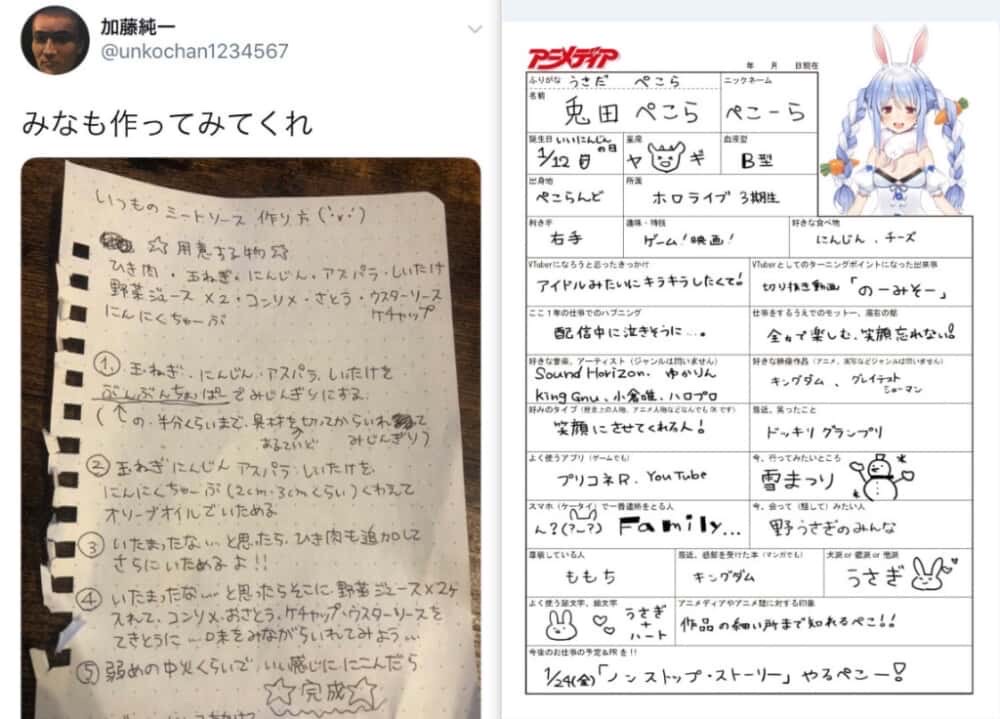 加藤純一
@unkochan1234567
みなも作ってみてくれ
いつものミートソース 作り方('ν')
☆用意する物☆
ひき肉・玉ねぎ・にんじん・アスパラ・しいたけ
野菜ジュース×2・コンソメ・さとう・ウスターソース
ケチャップ
にんにくちゅーぶ
① 玉ねぎ、にんじん・アスパラ、しいたけを
ぶんぶんちょぱーでみじんぎりにする
(↑の半分くらいまで、具材を切ってからいれて
あるていど みじんぎり)
② 玉ねぎにんじん アスパラ・しいたけを
にんにくちゅーぶ(2cm・3cmくらい)くわえて
オリーブオイルでいためる
③ いたまったな…と思ったら、ひき肉も追加して
さらにいためるよ!!
④ いたまったな…と思ったらそこに、野菜ジュース×2ヶ
入れて、コンソメ・おさとう・ケチャップ・ウスターソースを
てきとうに…味をみながらいれてみよう…
⑤ 弱めの中火くらいで、いい感じににこんだら
☆完成☆
アニメディア
年 月 日現在
ふりがな うさだ ぺこら
名前 兎田ぺこら
ニックネーム
ぺこーら
誕生日 いいにんじんの日
1/12日
星座
ヤギ
血液型
B型
出身地
ぺこらんど
所属
ホロライブ 3期生
利き手
右手
趣味・特技
ゲーム!映画!
好きな食べ物
にんじん、チーズ
VTuberになろうと思ったきっかけ
アイドルみたいにキラキラしたくて!
VTuberとしてのターニングポイントになった出来事
切り抜き動画「のーみそー」
ここ1年の仕事でのハプニング
配信中に泣きそうに…。
仕事をするうえでのモットー、座右の銘
全力で楽しむ、笑顔忘れない!
好きな音楽、アーティスト(ジャンルは問いません)
Sound Horizon、ゆかりん
King Gnu、小倉唯、ハロプロ
好きな映像作品(アニメ、実写などジャンルは問いません)
キングダム、グレイテスト
ショーマン
好みのタイプ(歴史上の人物、アニメ人物などなんでもOKです)
笑顔にさせてくれる人!
最近、笑ったこと
ドッキリグランプリ
よく使うアプリ(ゲームでも)
プリコネR、YouTube
今、行ってみたいところ
雪まつり
スマホ(ケータイ)で一番連絡をとる人
ん?(?_?) Family...
今、会って(話して)みたい人
野うさぎのみんな
尊敬している人
ももち
最近、感銘を受けた本(マンガでも)
キングダム
犬派or猫派or他派
うさぎ
よく使う顔文字、絵文字
うさぎ
+
ハート
アニメディアやアニメ誌に対する印象
作品の細い所まで知れるぺこ!!
今後のお仕事の予定&PRを!!
1/24(金)「ノンストップ・ストーリー」やるぺこー!